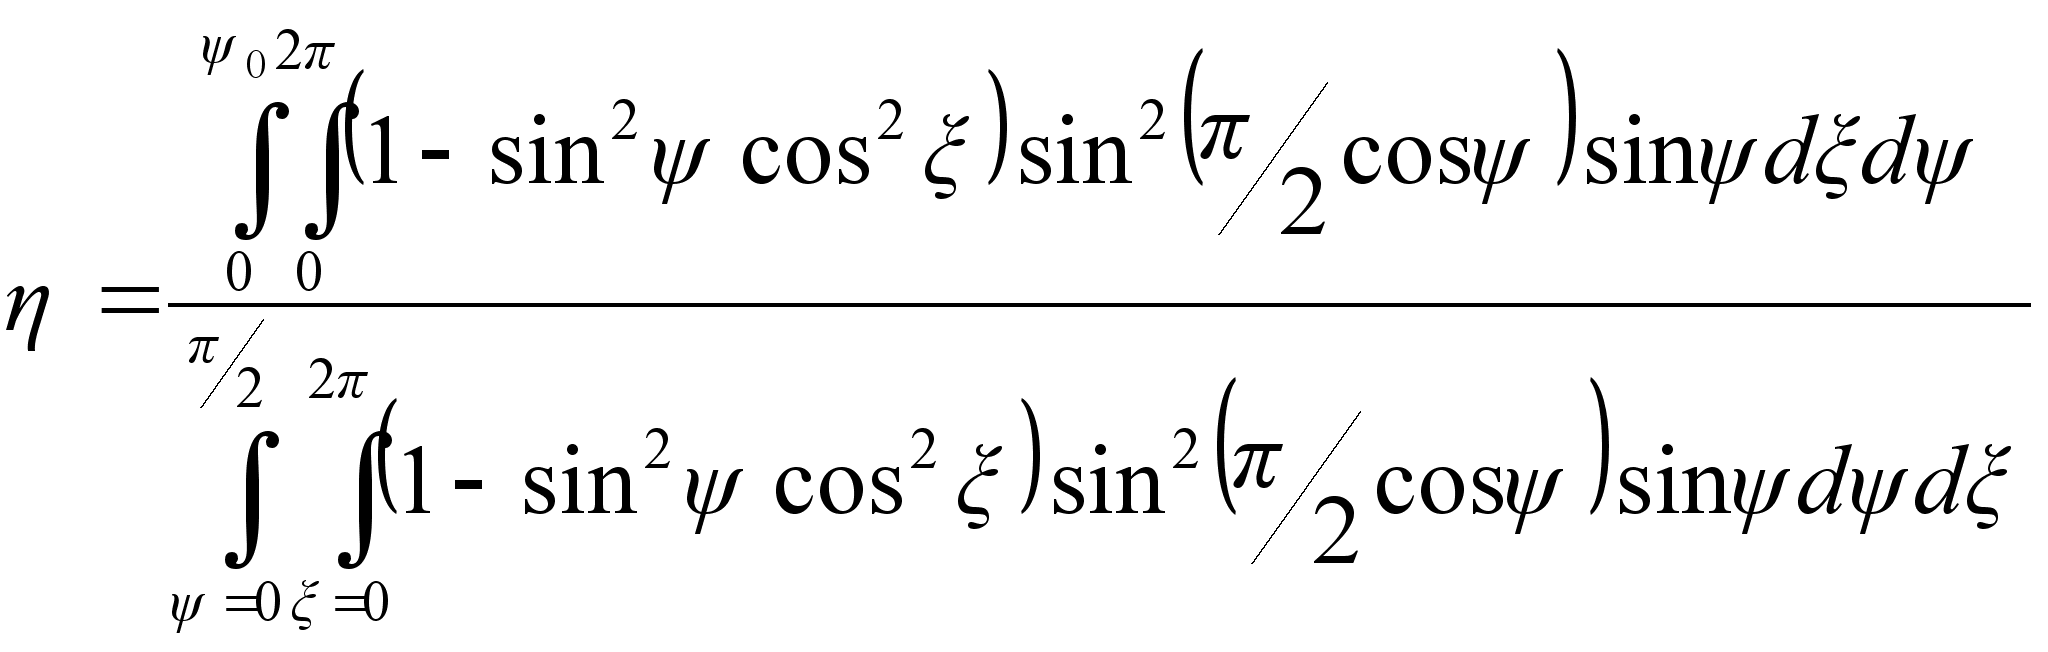 η = ∫₀^{ψ₀} ∫₀^{2π} (1 - sin²ψ cos²ξ) sin²(π/2 cosψ) sinψ dξ dψ
/ ∫_{ψ=0}^{π/2} ∫_{ξ=0}^{2π} (1 - sin²ψ cos²ξ) sin²(π/2 cosψ) sinψ dψ dξ